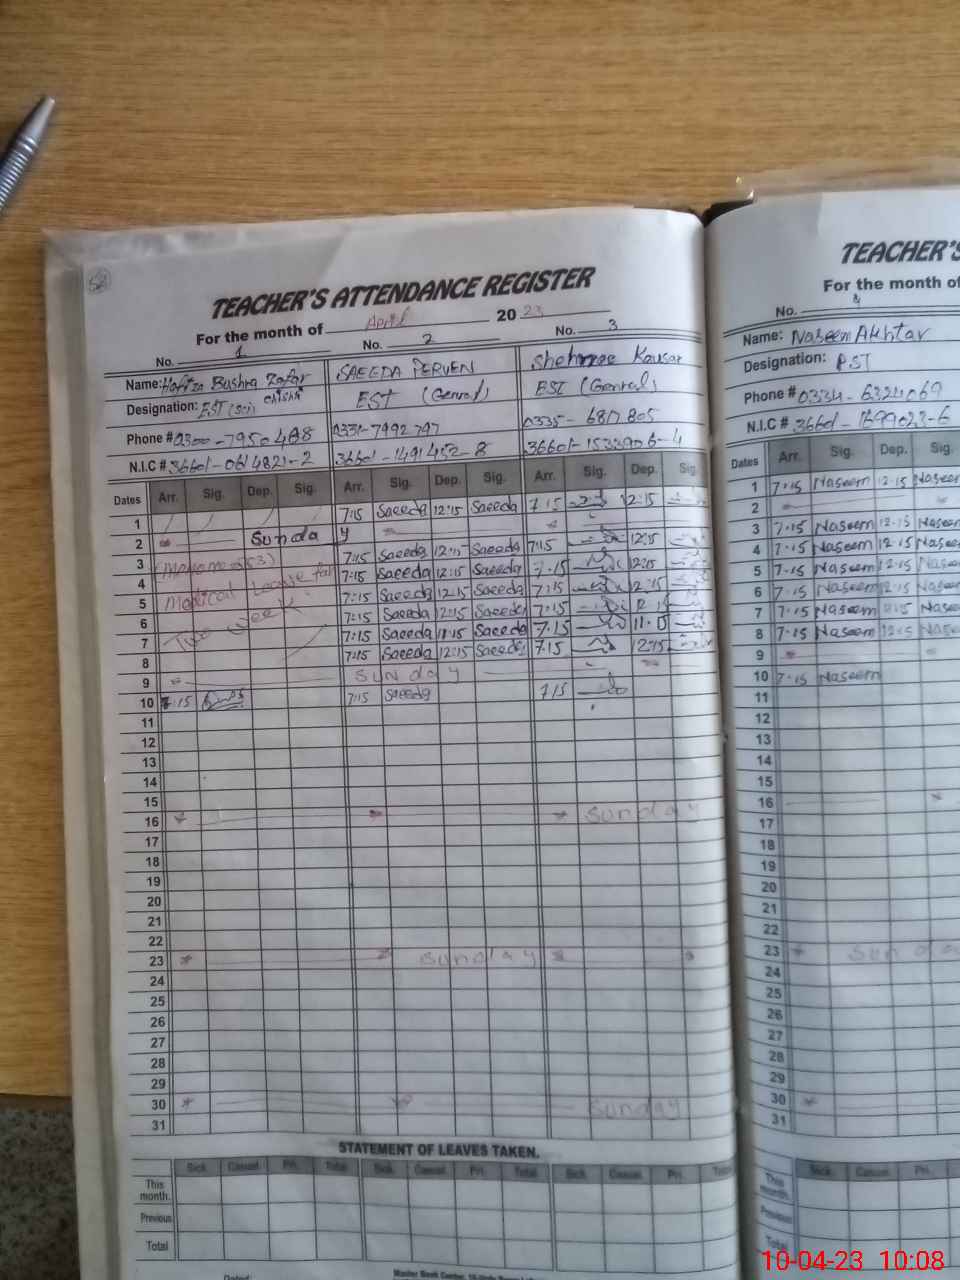 52
TEACHER'S ATTENDANCE REGISTER
For the month of April 2023
No. 1 No. 2 No. 3
Name: Hafiza Bushra Zafar SAEEDA PERVEN Shehnaz Kausar
chishti
Designation: EST (Sci) EST (Genral) EST (Genral)
Phone # 0300-7950488 0331-7992747 0335-6817805
N.I.C # 36601-0614821-2 36601-1491452-8 36601-1532906-4
Dates Arr. Sig. Dep. Sig. Arr. Sig. Dep. Sig. Arr. Sig. Dep. Sig.
1 7:15 Saeeda 12:15 Saeeda 7:15 12:15
2 Sunday
3 7:15 Saeeda 12:15 Saeeda 7:15 12:15
4 Medical Leave for 7:15 Saeeda 12:15 Saeeda 7:15 12:15
5 7:15 Saeeda 12:15 Saeeda 7:15 12:15
6 Two week 7:15 Saeeda 12:15 Saeeda 7:15 12:15
7 7:15 Saeeda 11:15 Saeeda 7:15 11:15
8 7:15 Saeeda 12:15 Saeeda 7:15 12:15
9 Sunday
10 7:15 7:15 Saeeda 7:15
11
12
13
14
15
16 Sunday
17
18
19
20
21
22
23 Sunday
24
25
26
27
28
29
30 Sunday
31
STATEMENT OF LEAVES TAKEN.
Sick. Casual. Pri. Total Sick. Casual. Pri. Total Sick. Casual. Pri. Total
This month.
Previous
Total
Dated
TEACHER'S
For the month of
No. 4
Name: Naseem Akhtar
Designation: PST
Phone # 0334-6324069
N.I.C # 36601-1699023-6
Dates Arr. Sig. Dep. Sig.
1 7:15 Naseem 12:15 Naseem
2
3 7:15 Naseem 12:15 Naseem
4 7:15 Naseem 12:15 Naseem
5 7:15 Naseem 12:15 Naseem
6 7:15 Naseem 12:15 Naseem
7 7:15 Naseem 11:15 Naseem
8 7:15 Naseem 12:15 Naseem
9
10 7:15 Naseem
11
12
13
14
15
16
17
18
19
20
21
22
23 Sunday
24
25
26
27
28
29
30
31
Sick. Casual. Pri.
This month.
Previous
Total
10-04-23 10:08